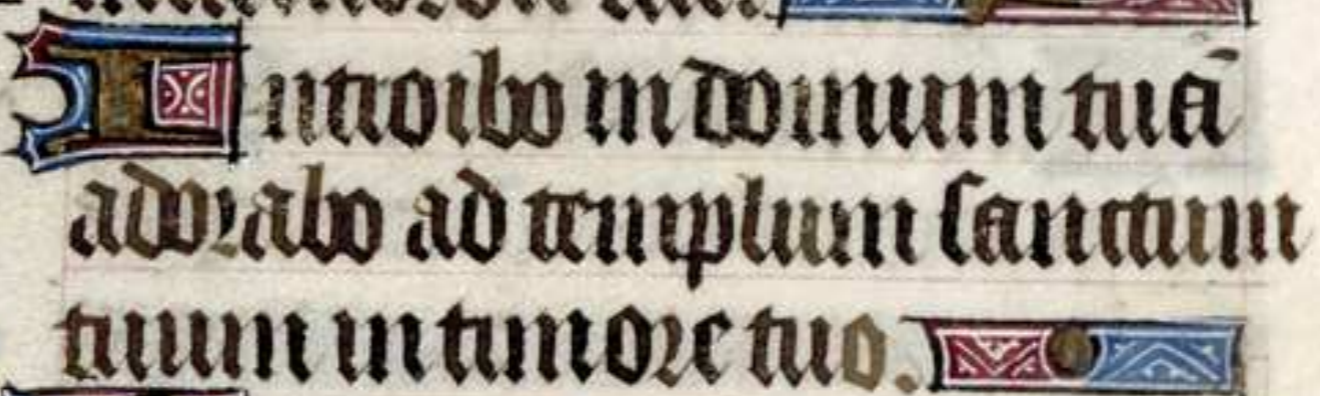 Introibo in domum tuā
adorabo ad templum sanctum
tuum in timore tuo.